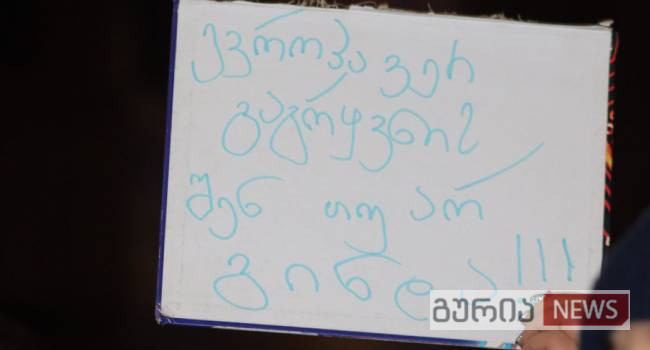 ევროპა ვერ
გაგრყვნის
შენ თუ არ
გინდა!!!
გურია NEWS